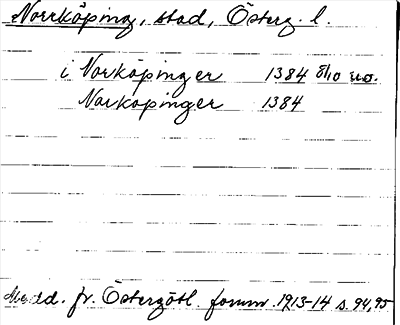 Norrköping, stad, Österg. l.
i Norköpinger 1384 8/10 uo.
Norköpinger 1384
Medd. fr. Östergötl. fornm. 1913-14 s. 94, 95